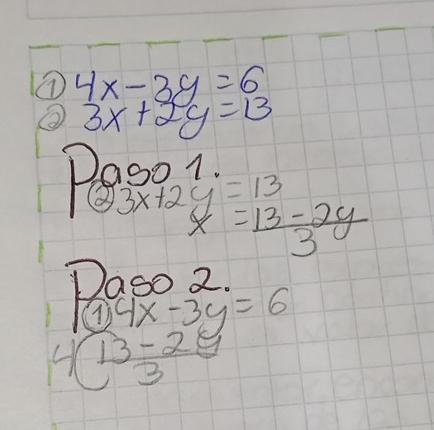 ① 4x-3y=6
② 3x+2y=13
Paso 1.
② 3x+2y=13
x = 13-2y
3
Paso 2.
① 4x-3y=6
4(13-2y
3